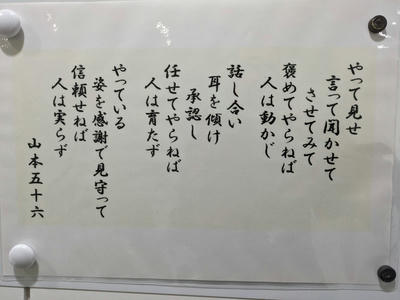 やって見せ
言って聞かせて
させてみて
褒めてやらねば
人は動かじ
話し合い
耳を傾け
承認し
任せてやらねば
人は育たず
やっている
姿を感謝で見守って
信頼せねば
人は実らず
山本五十六